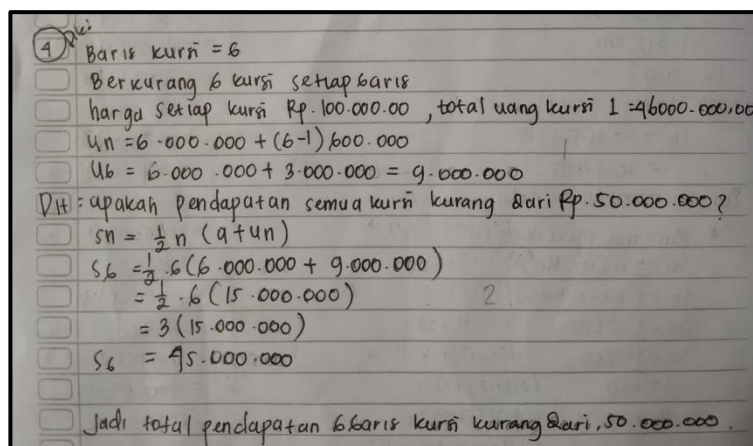 4 Dik:
Baris kursi = 6
Berkurang 6 kursi setiap baris
harga setiap kursi Rp. 100.000.00, total uang kursi 1 = 46000.000,00
Un = 6.000.000 + (6-1) 600.000
U6 = 6.000.000 + 3.000.000 = 9.000.000
Dit: apakah pendapatan semua kursi kurang dari Rp. 50.000.000?
Sn = 1/2 n (a + un)
S6 = 1/2 . 6 (6.000.000 + 9.000.000)
= 1/2 . 6 (15.000.000) 2
= 3 (15.000.000)
S6 = 45.000.000
Jadi total pendapatan 6 baris kursi kurang dari, 50.000.000.